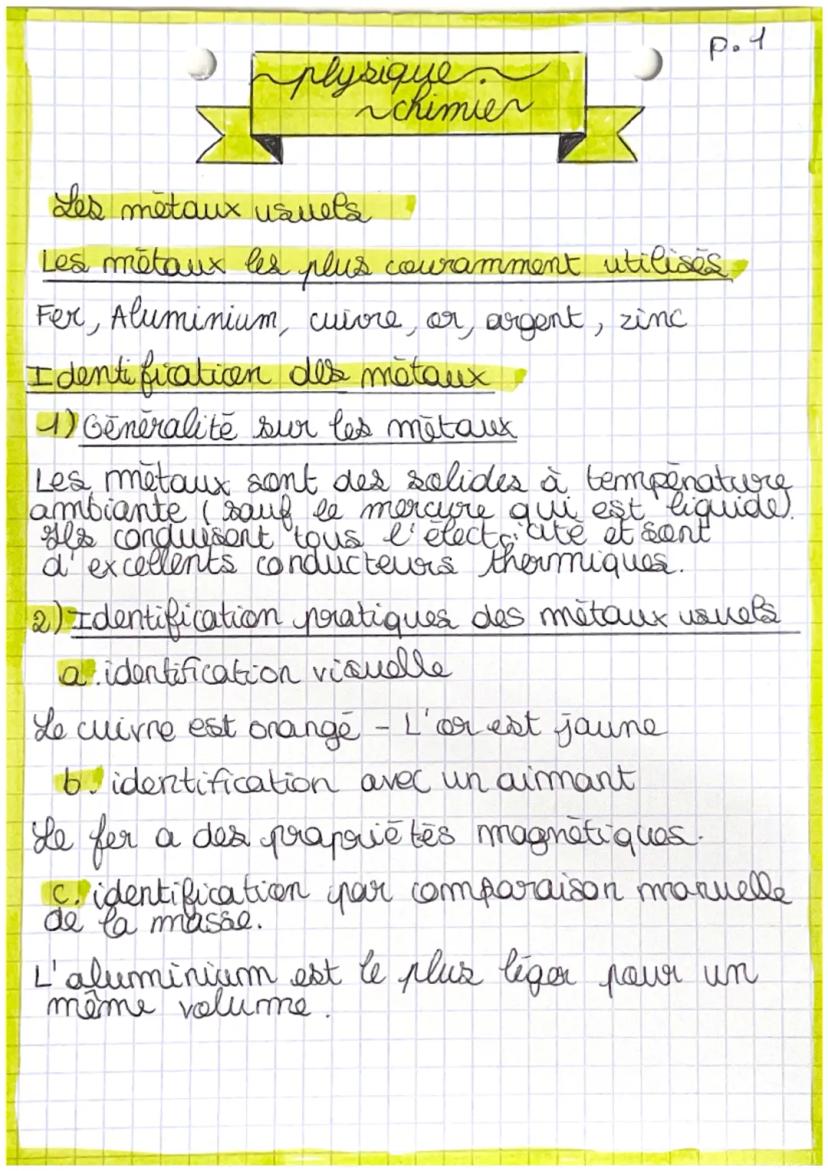 p.1
physique.
chimie
Les métaux usuels
Les métaux les plus couramment utilisés
Fer, Aluminium, cuivre, or, argent, zinc
Identification des métaux
1) Généralité sur les métaux
Les métaux sont des solides à température
ambiante (sauf le mercure qui est liquide).
Ils conduisent tous l'électricité et sont
d'excellents conducteurs thermiques.
2) Identification pratiques des métaux usuels
a. identification visuelle
Le cuivre est orangé - L'or est jaune
b. identification avec un aimant
Le fer a des propriétés magnétiques.
c. identification par comparaison manuelle
de la masse.
L'aluminium est le plus léger pour un
même volume.